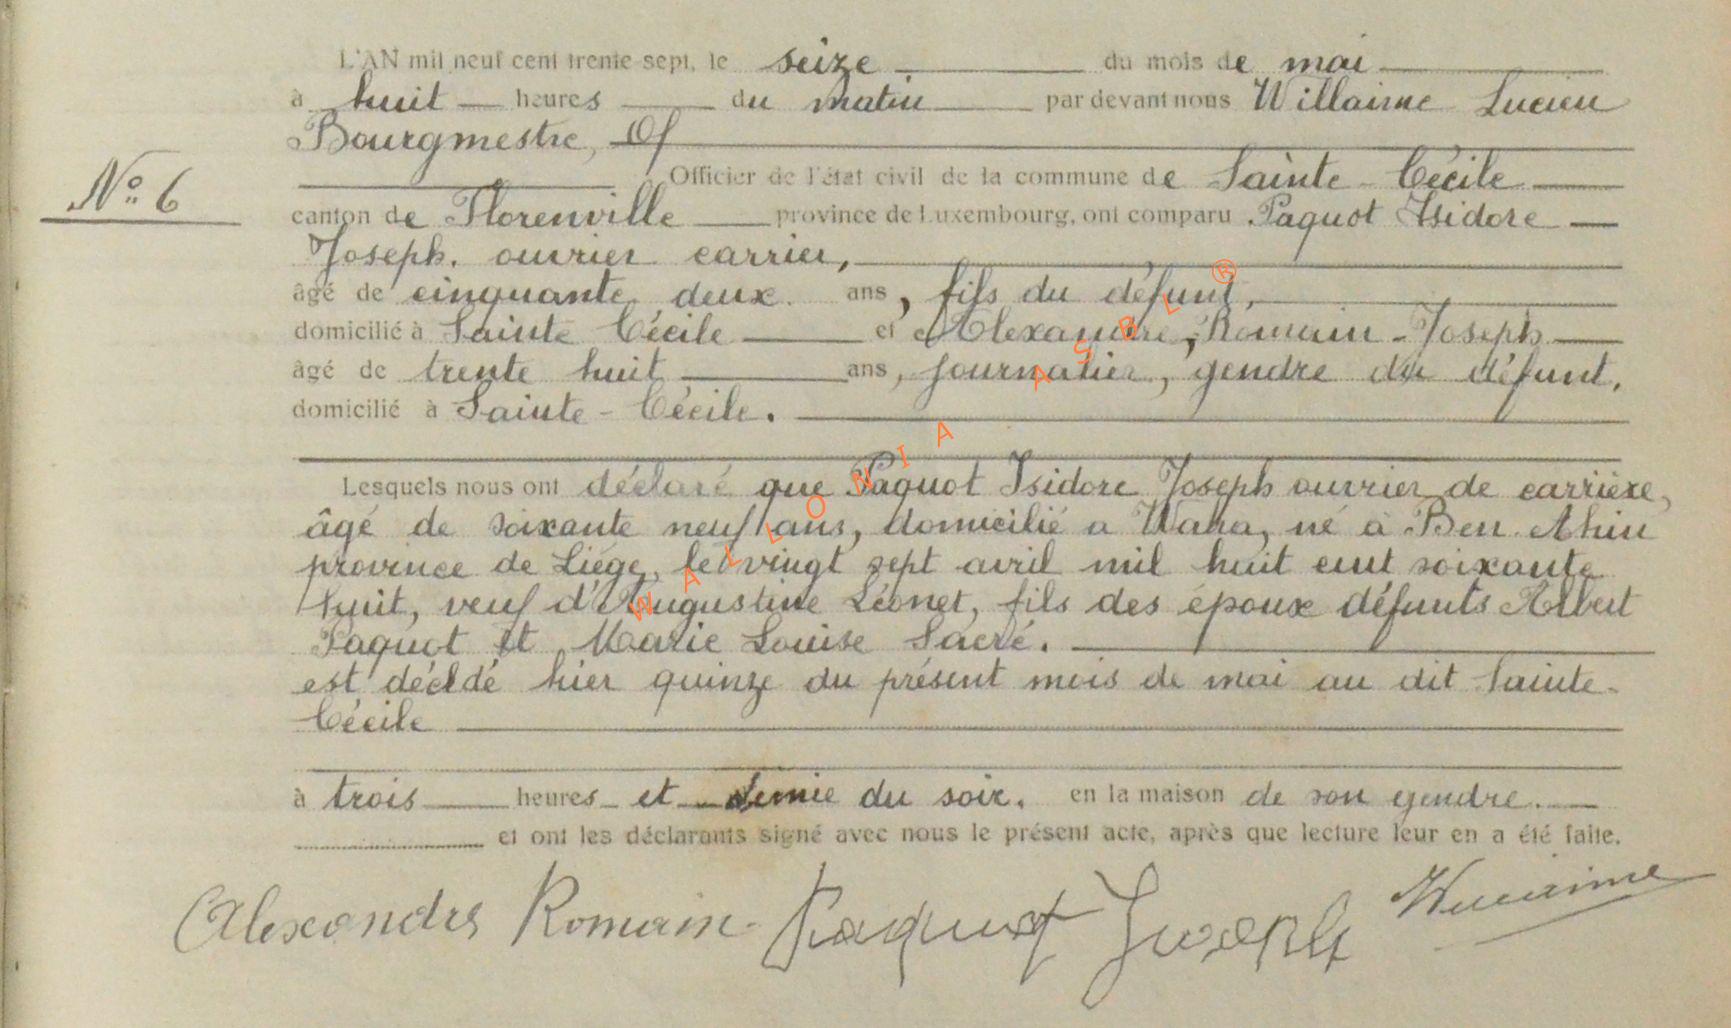 L'AN mil neuf cent trente-sept, le seize du mois de mai
à huit heures du matin par devant nous Willaime Lucien
Bourgmestre, Of
Officier de l'état civil de la commune de Sainte-Cécile
N° 6
canton de Florenville province de Luxembourg, ont comparu Paquot Isidore
Joseph. ouvrier carrier,
âgé de cinquante deux ans, fils du défunt,
domicilié à Sainte Cécile et Alexandre, Romain-Joseph
âgé de trente huit ans, journalier, gendre du défunt,
domicilié à Sainte-Cécile.
Lesquels nous ont déclaré que Paquot Isidore Joseph ouvrier de carrière,
âgé de soixante neuf ans, domicilié a né à Ben Ahin
province de Liége, le vingt sept avril mil huit cent soixante
huit, veuf d'Augustine Léonet, fils des époux défunts Albert
Paquot et Marie Louise Sacré.
est décédé hier quinze du présent mois de mai au dit Sainte-
Cécile
à trois heures et demie du soir. en la maison de son gendre.
et ont les déclarants signé avec nous le présent acte, après que lecture leur en a été faite.
Alexandre Romain Paquot Joseph Willaime
WALLONIA ASBL ®